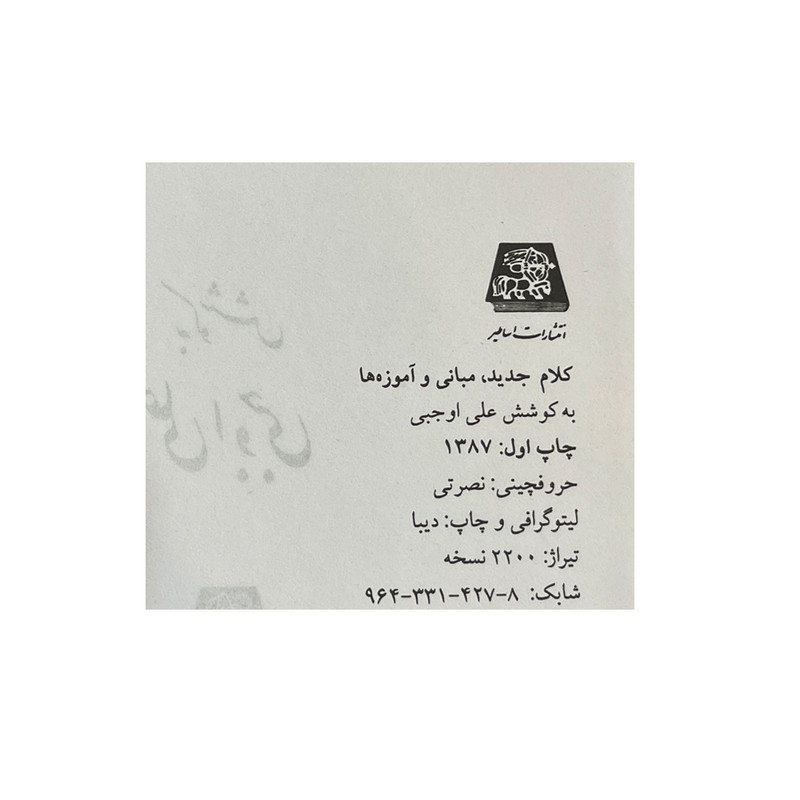 انتشارات اساطیر
کلام جدید، مبانی و آموزه‌ها
به کوشش علی اوجبی
چاپ اول: ۱۳۸۷
حروفچینی: نصرتی
لیتوگرافی و چاپ: دیبا
تیراژ: ۲۲۰۰ نسخه
شابک: ۸-۴۲۷-۳۳۱-۹۶۴
به کوشش
علی اوجبی